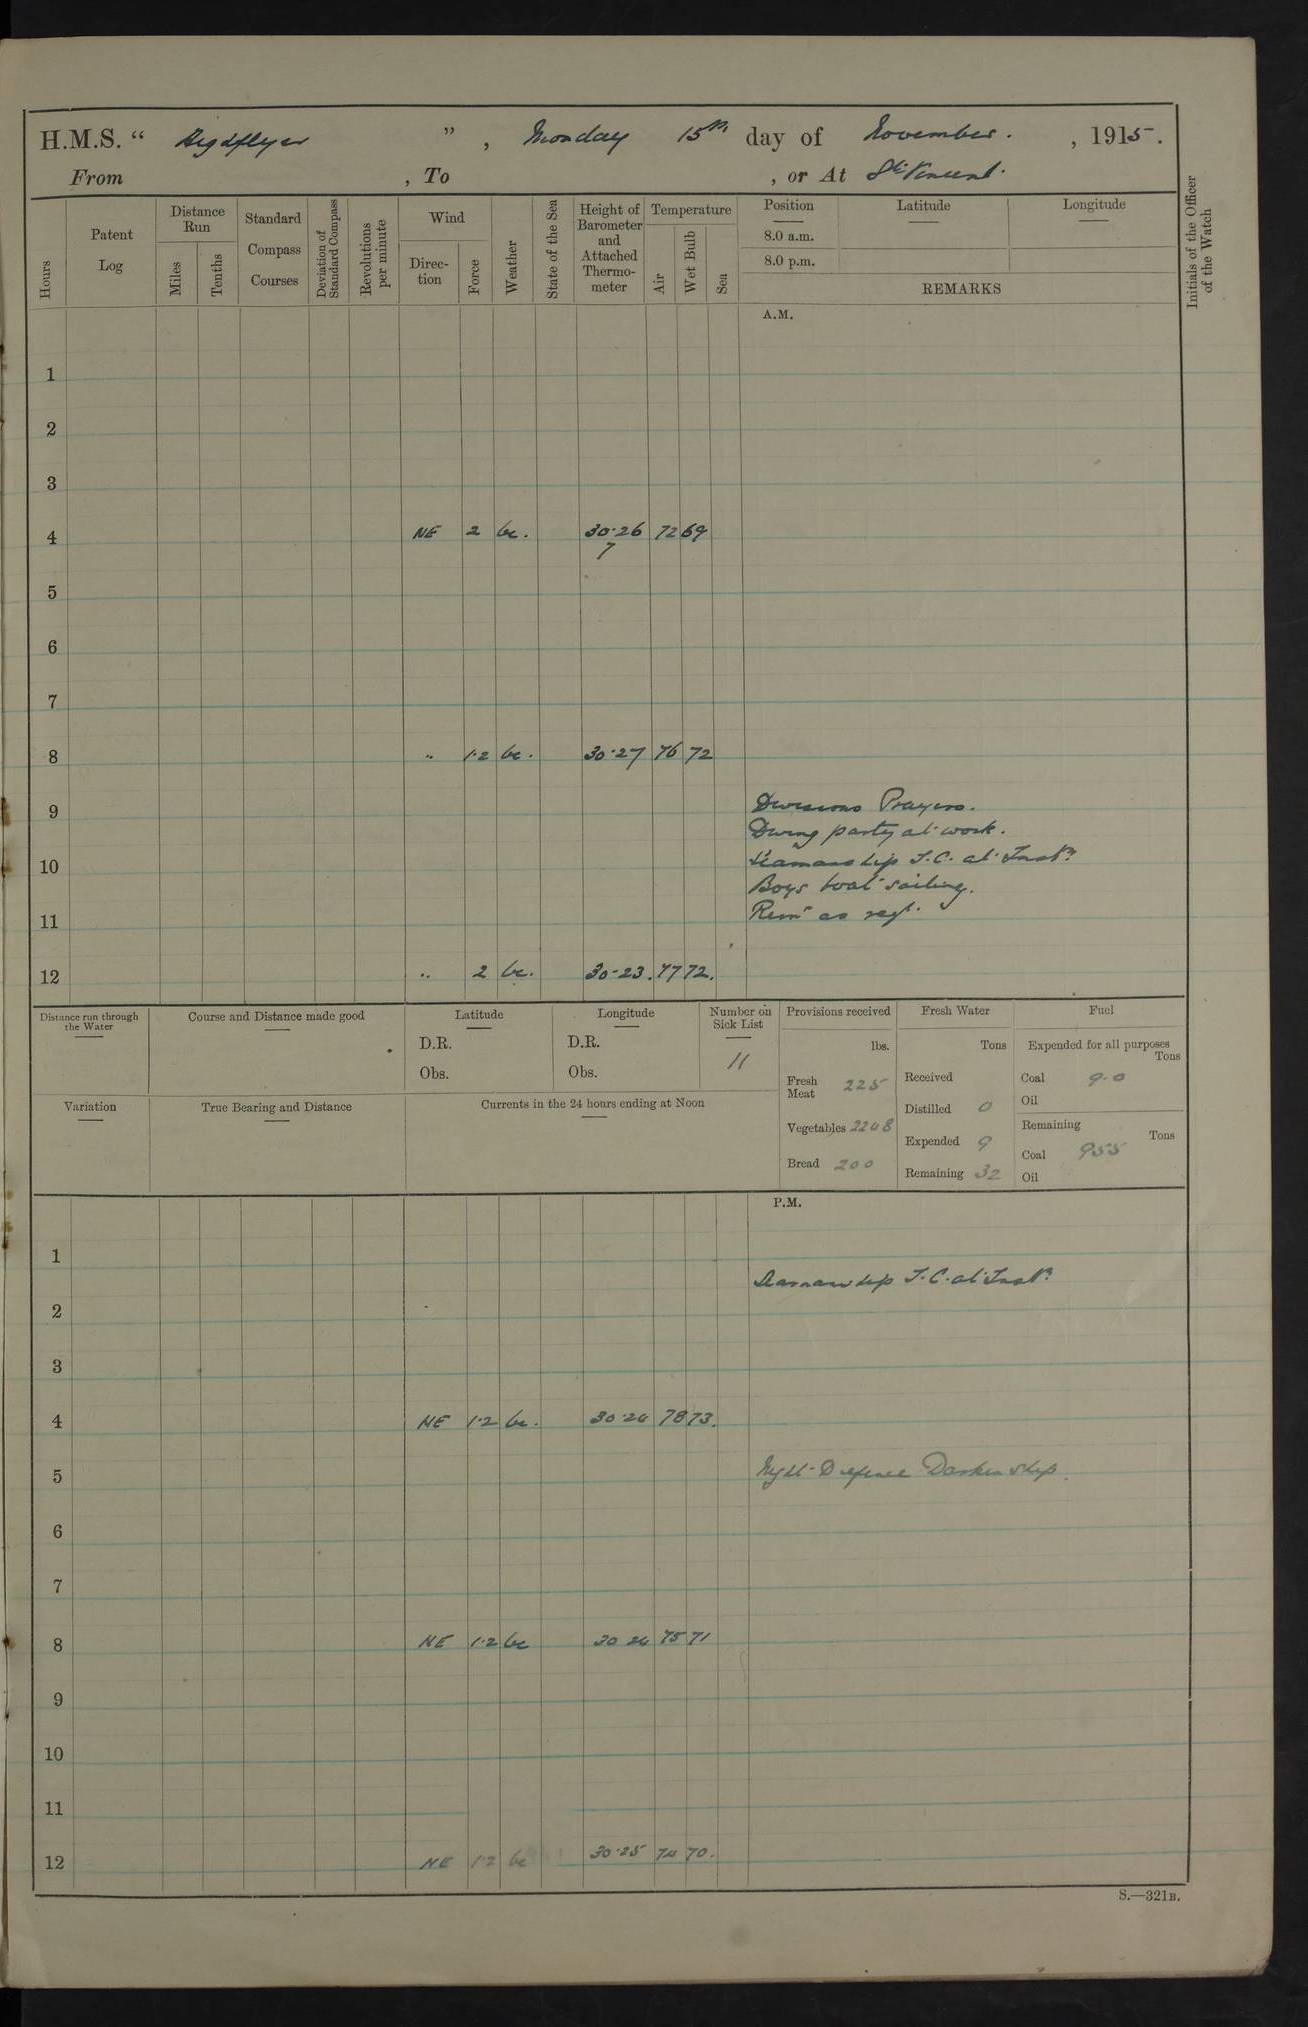 H.M.S. “ Highflyer ” , Monday 15th day of November. , 1915.
From , To , or At St. Vincent.
Hours
Patent Log
Distance Run
Miles
Tenths
Standard Compass Courses
Deviation of Standard Compass
Revolutions per minute
Wind
Direc-tion
Force
Weather
State of the Sea
Height of Barometer and Attached Thermo-meter
Temperature
Air
Wet Bulb
Sea
Position Latitude Longitude
8.0 a.m.
8.0 p.m.
REMARKS
Initials of the Officer of the Watch
A.M.
1
2
3
4 NE 2 bc. 30.26 72 69
7
5
6
7
8 " 1.2 bc. 30.27 76 72
9 Divisions Prayers.
Diving party at work.
10 Seamanship T.C. at Instn.
Boys boat sailing.
11 Remr as req.
12 " 2 bc. 30.23. 77 72.
Distance run through the Water
Course and Distance made good
Latitude
D.R.
Obs.
Longitude
D.R.
Obs.
Number on Sick List
11
Provisions received
lbs.
Fresh Meat 225
Vegetables 2248
Bread 200
Fresh Water
Tons
Received
Distilled 0
Expended 9
Remaining 32
Fuel
Expended for all purposes
Tons
Coal 9.0
Oil
Remaining
Tons
Coal 955
Oil
Variation
True Bearing and Distance
Currents in the 24 hours ending at Noon
P.M.
1
Seamanship T.C. at Instn.
2
3
4 NE 1.2 bc. 30.24 78 73.
5 Night Defence Darken ship.
6
7
8 NE 1.2 bc 30 24 75 71
9
10
11
12 NE 1.2 bc 30.25 74 70.
S.—321B.